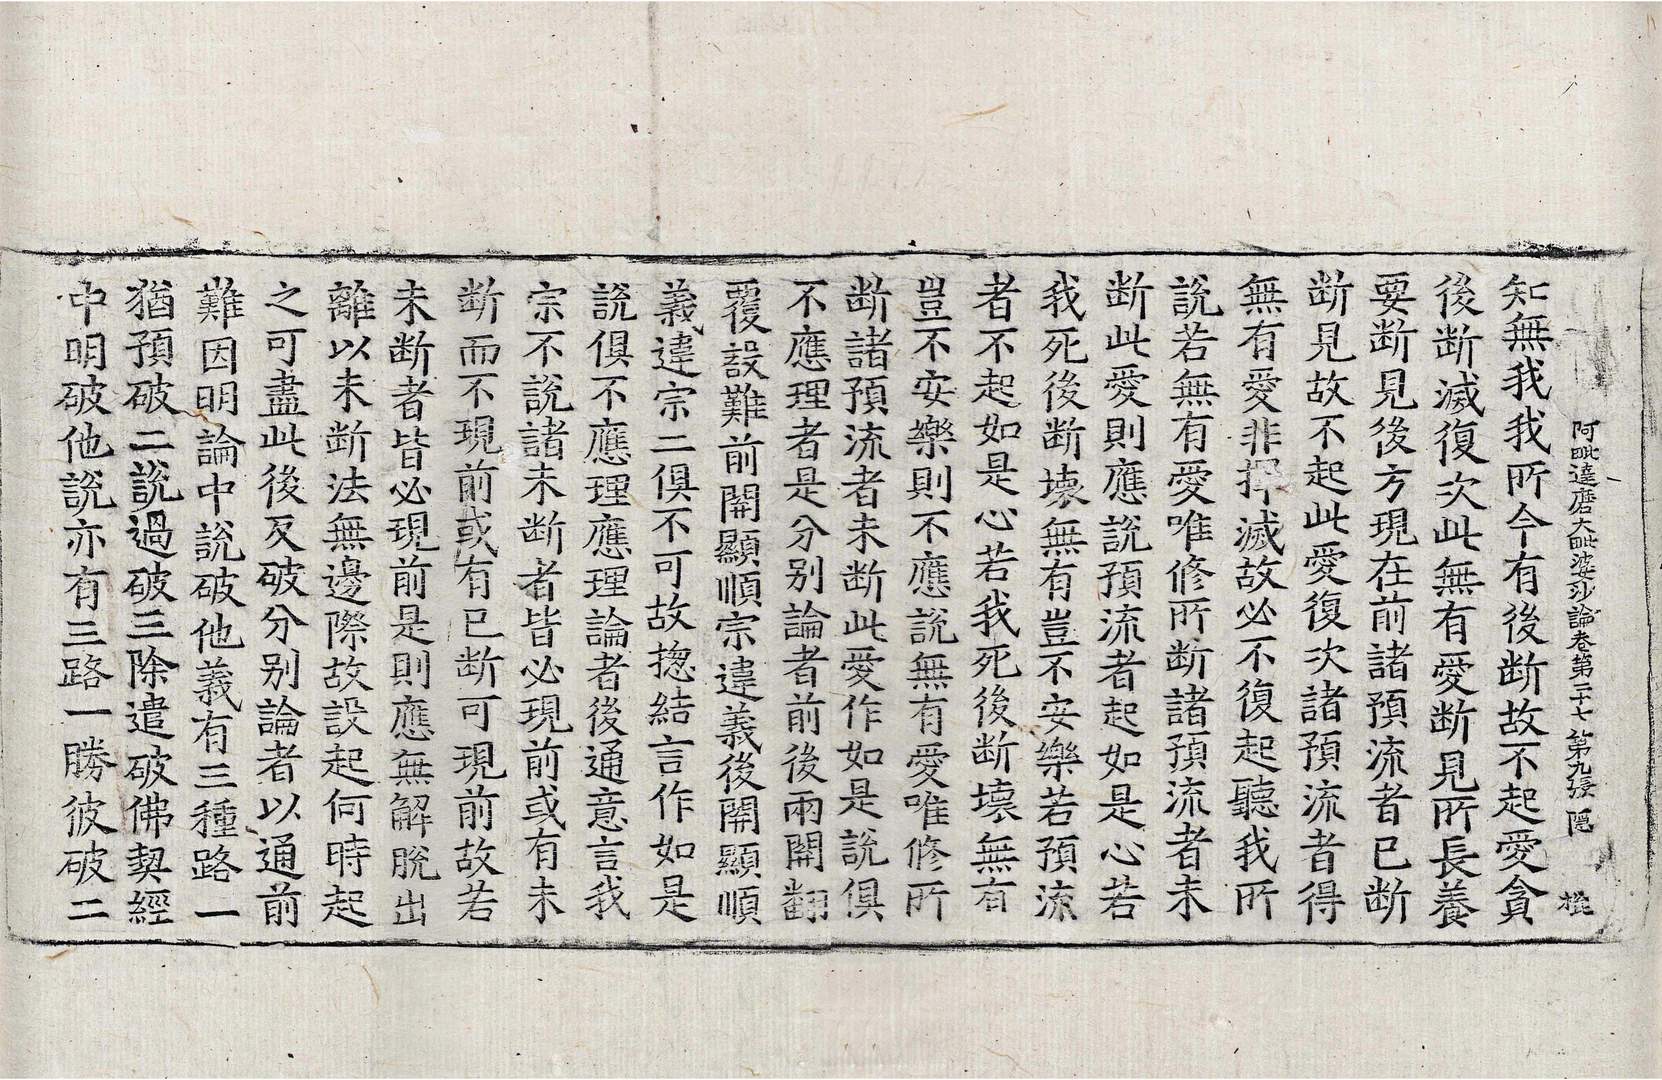 阿毗達磨大毗婆沙論卷第二十七 第九張 隱
知無我我所今有後斷故不起愛貪
後斷滅復次此無有愛斷見所長養
要斷見後方現在前諸預流者已斷
斷見故不起此愛復次諸預流者得
無有愛非擇滅故必不復起聽我所
說若無有愛唯修所斷諸預流者未
斷此愛則應說預流者起如是心若
我死後斷壞無有豈不安樂若預流
者不起如是心若我死後斷壞無有
豈不安樂則不應說無有愛唯修所
斷諸預流者未斷此愛作如是說俱
不應理者是分別論者前後兩關翻
覆設難前關顯順宗違義後關顯順
義違宗二俱不可故揔結言作如是
說俱不應理應理論者後通意言我
宗不說諸未斷者皆必現前或有未
斷而不現前或有已斷可現前故若
未斷者皆必現前是則應無解脫出
離以未斷法無邊際故設起何時起
之可盡此後反破分別論者以通前
難因明論中說破他義有三種路一
猶預破二說過破三除遣破佛契經
中明破他說亦有三路一勝彼破二